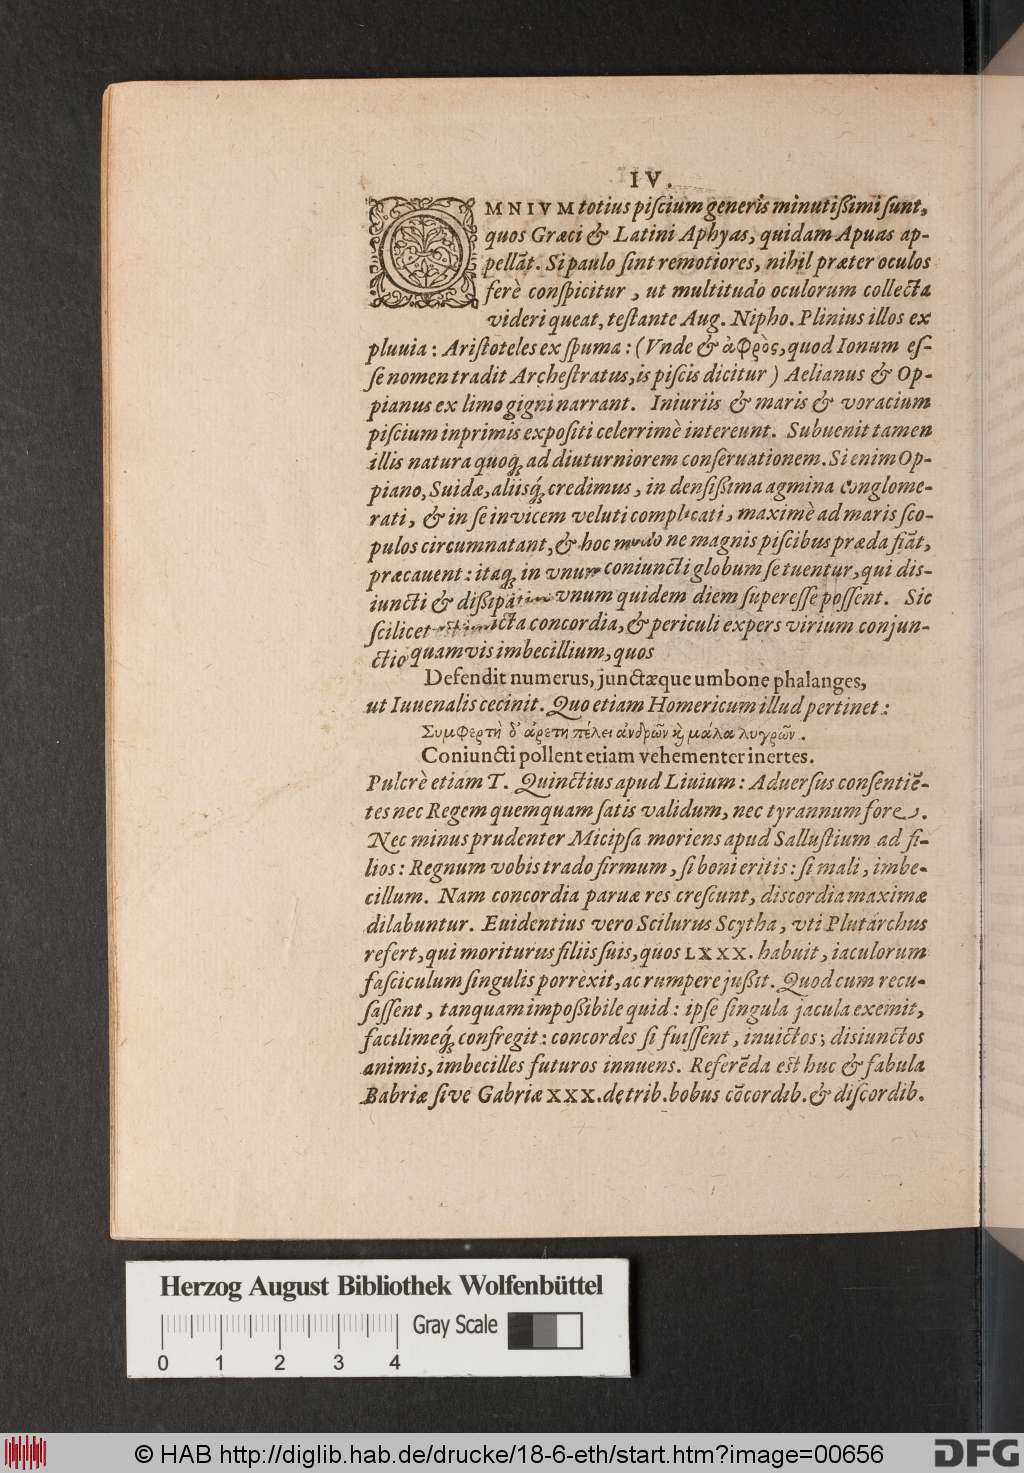 IV.
OMNIVM totius piſcium generis minutißimi ſunt,
quos Græci & Latini Aphyas, quidam Apuas ap-
pellãt. Si paulo ſint remotiores, nihil præter oculos
ferè conſpicitur, ut multitudo oculorum collecta
videri queat, teſtante Aug. Nipho. Plinius illos ex
pluuia: Ariſtoteles ex ſpuma: (Vnde & ἀφρὸς, quod Ionum eſ-
ſe nomen tradit Archeſtratus, is piſcis dicitur) Aelianus & Op-
pianus ex limo gigni narrant. Iniuriis & maris & voracium
piſcium inprimis expoſiti celerrimè intereunt. Subuenit tamen
illis natura quoq́; ad diuturniorem conſeruationem. Si enim Op-
piano, Suidæ, aliisq́; credimus, in denſißima agmina conglome-
rati, & in ſe invicem veluti complicati, maximè ad maris ſco-
pulos circumnatant, & hoc modo ne magnis piſcibus præda fiãt,
præcauent: itaq́; in vnum coniuncti globum ſe tuentur, qui dis-
iuncti & dißipati ne vnum quidem diem ſupereſſe poſſent. Sic
ſcilicet icta concordia, & periculi expers virium conjun-
ctio quamvis imbecillium, quos
Defendit numerus, junctæque umbone phalanges,
ut Iuuenalis cecinit. Quo etiam Homericum illud pertinet:
Συμφερτὴ δ' ἀρετη πέλει ἀνδρῶν καὶ μάλα λυγρῶν.
Coniuncti pollent etiam vehementer inertes.
Pulcrè etiam T. Quinctius apud Liuium: Aduerſus conſentiẽ-
tes nec Regem quemquam ſatis validum, nec tyrannum fore.
Nec minus prudenter Micipſa moriens apud Salluſtium ad fi-
lios: Regnum vobis trado firmum, ſi boni eritis: ſi mali, imbe-
cillum. Nam concordia paruæ res creſcunt, discordia maximæ
dilabuntur. Euidentius vero Scilurus Scytha, vti Plutarchus
refert, qui moriturus filiis ſuis, quos LXXX. habuit, iaculorum
faſciculum ſingulis porrexit, ac rumpere jußit. Quod cum recu-
ſaſſent, tanquam impoßibile quid: ipſe ſingula jacula exemit,
facilimeq́; confregit: concordes ſi fuiſſent, inuictos; disiunctos
animis, imbecilles futuros innuens. Referẽda eſt huc & fabula
Babriæ ſive Gabriæ XXX. de trib. bobus cõcordib. & diſcordib.
Herzog August Bibliothek Wolfenbüttel
Gray Scale
0 1 2 3 4
© HAB http://diglib.hab.de/drucke/18-6-eth/start.htm?image=00656
DFG